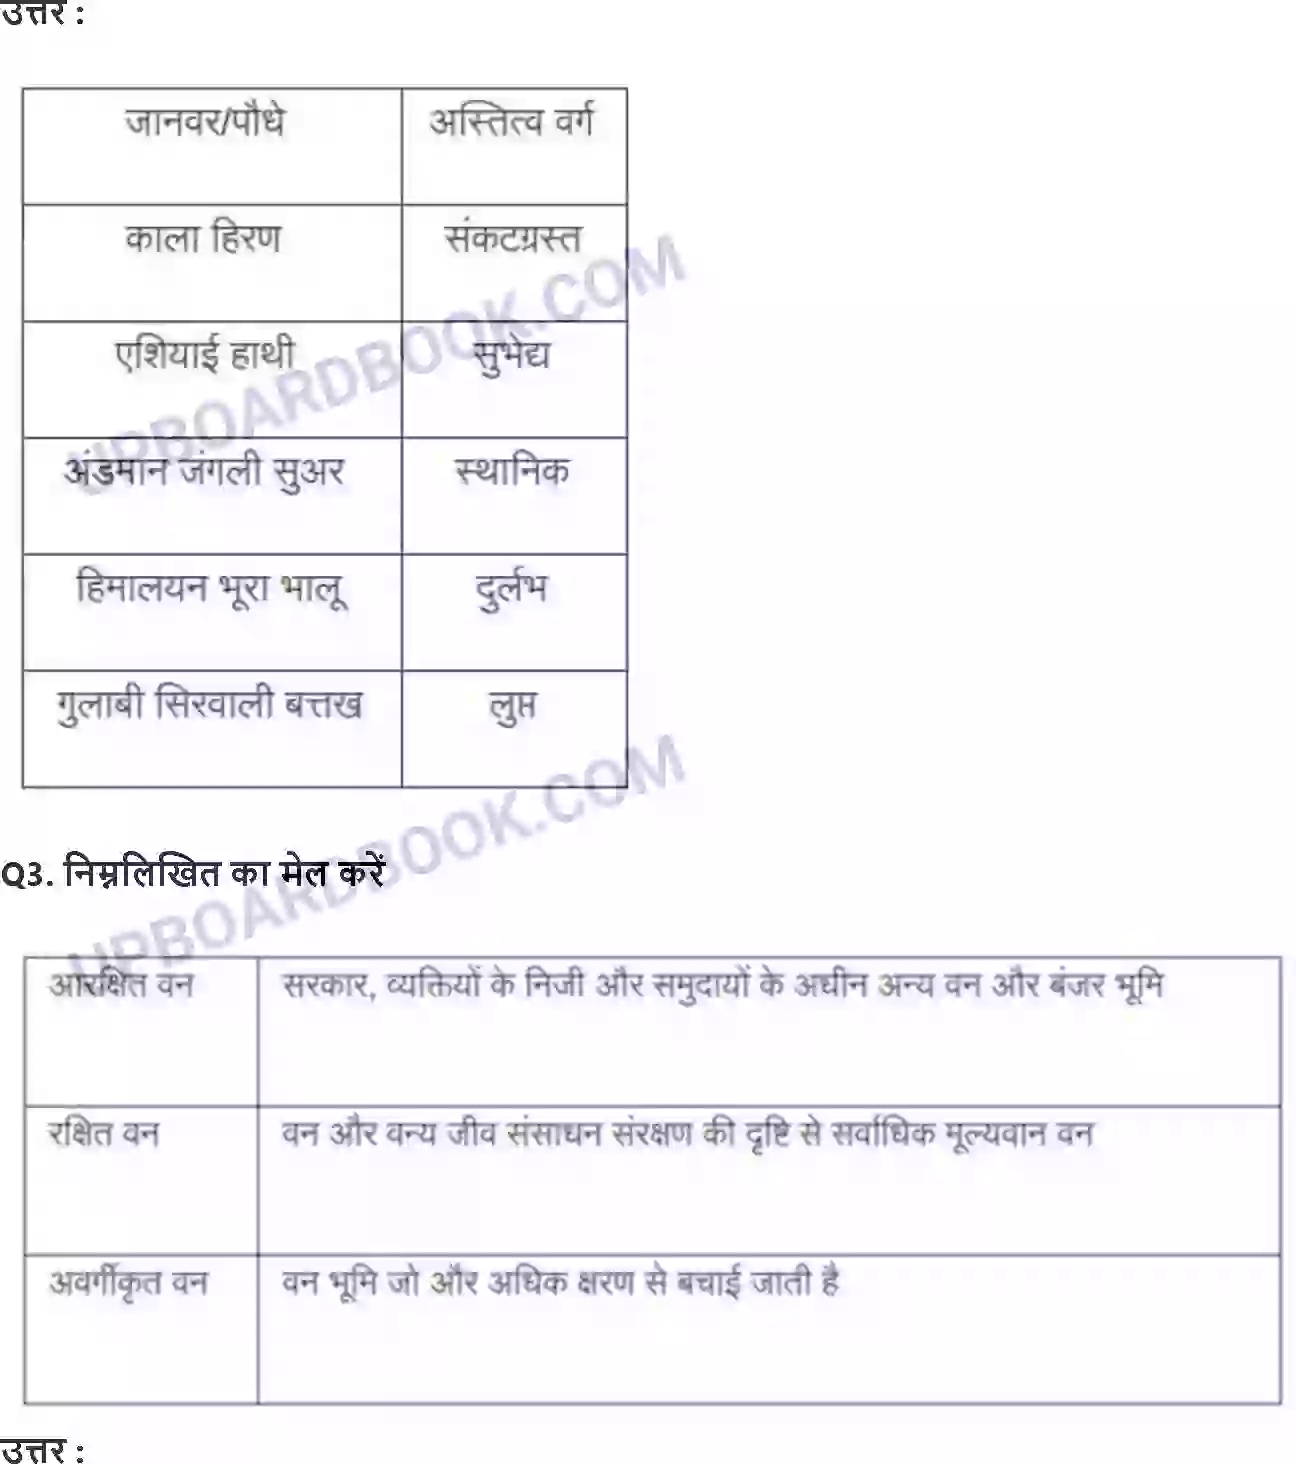 उत्तर :
जानवर/पौधे अस्तित्व वर्ग
काला हिरण संकटग्रस्त
एशियाई हाथी सुभेद्य
अंडमान जंगली सुअर स्थानिक
हिमालयन भूरा भालू दुर्लभ
गुलाबी सिरवाली बत्तख लुप्त
UPBOARDBOOK.COM
Q3. निम्नलिखित का मेल करें
UPBOARDBOOK.COM
आरक्षित वन सरकार, व्यक्तियों के निजी और समुदायों के अधीन अन्य वन और बंजर भूमि
रक्षित वन वन और वन्य जीव संसाधन संरक्षण की दृष्टि से सर्वाधिक मूल्यवान वन
अवर्गीकृत वन वन भूमि जो और अधिक क्षरण से बचाई जाती है
उत्तर :